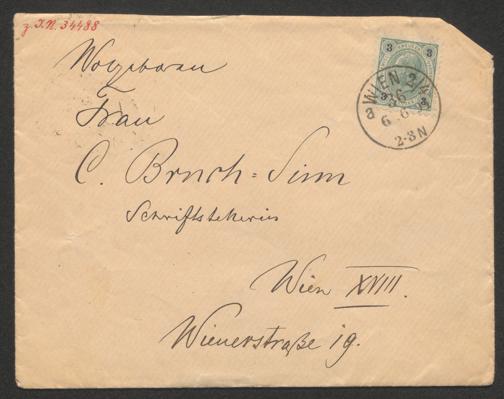 z I.N. 34488
Wolgeboren
Frau
C. Bruch-Sinn
Schriftstellerin
Wien XVIII.
Wienerstraße 19.
3 3
WIEN 3/4
3 3
a
36
6 6
2-3N